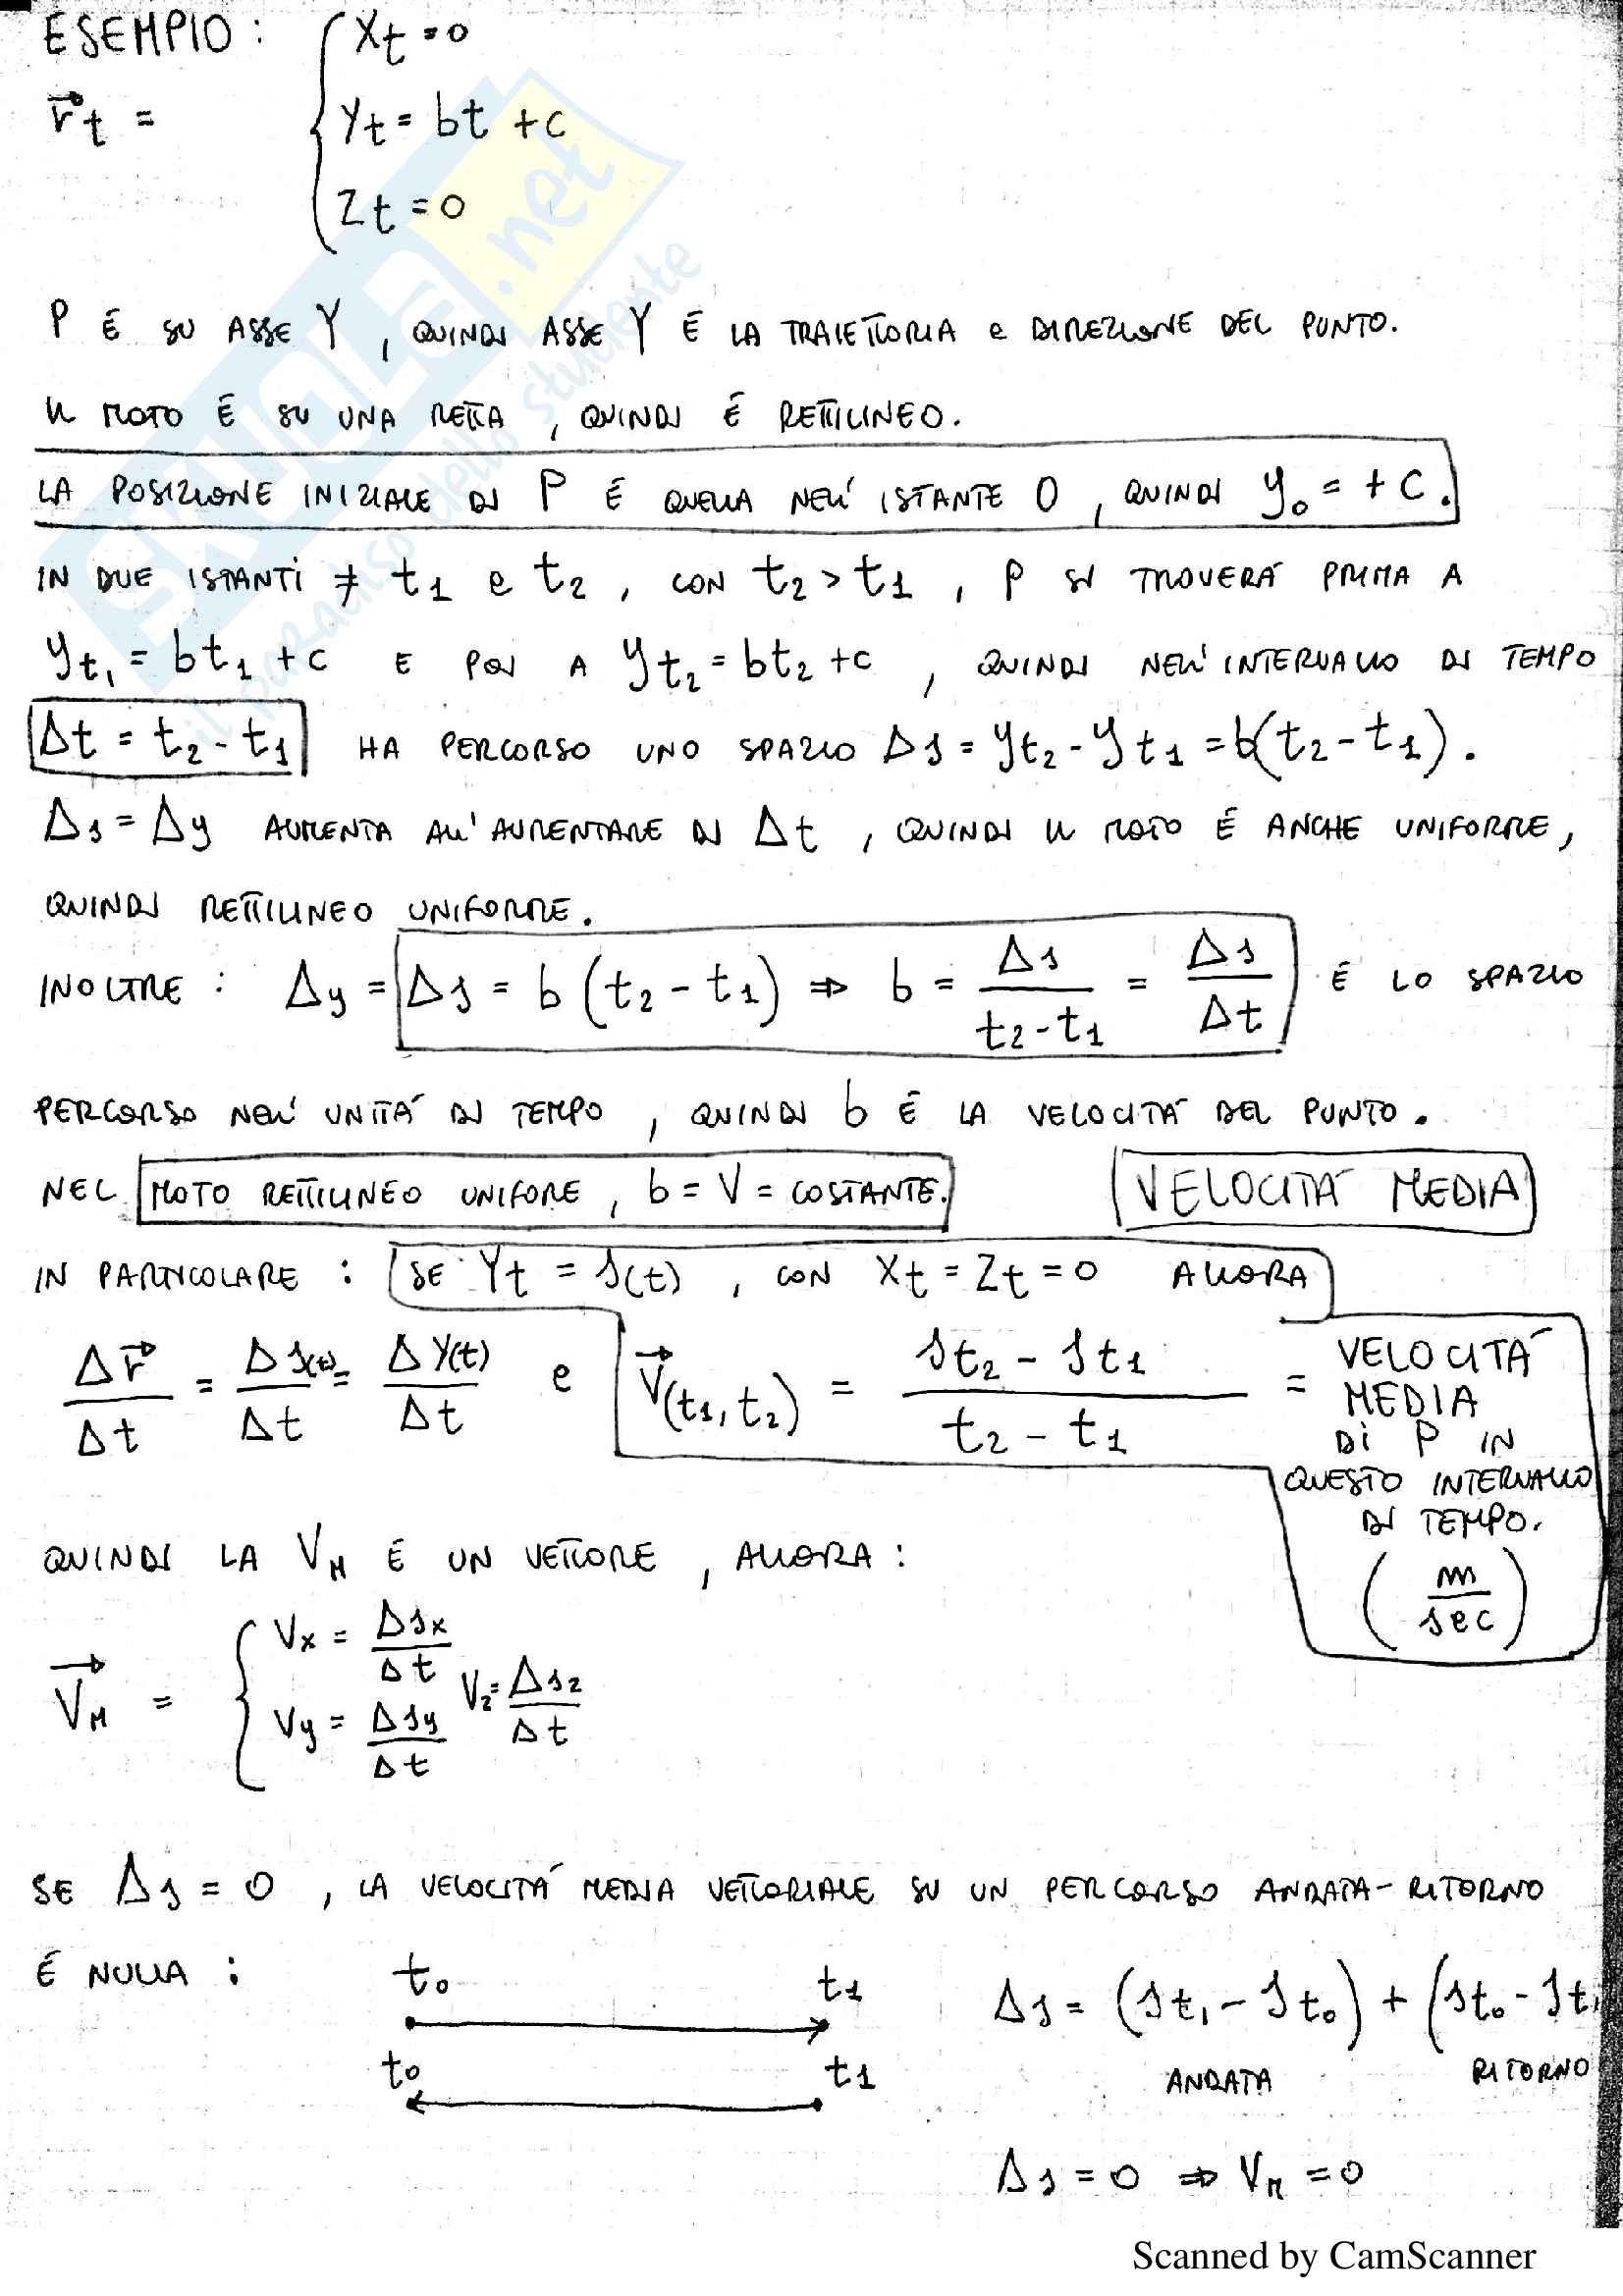 ESEMPIO :
Xt = 0
r⃗t = Yt = bt + c
Zt = 0
P É SU ASSE Y , QUINDI ASSE Y É LA TRAIETTORIA e DIREZIONE DEL PUNTO.
IL MOTO É SU UNA RETTA , QUINDI É RETTILINEO.
LA POSIZIONE INIZIALE DI P É QUELLA NELL' ISTANTE 0 , QUINDI y₀ = + C.
IN DUE ISTANTI ≠ t1 e t2 , CON t2 > t1 , P SI TROVERÁ PRIMA A
yt₁ = bt1 + c E POI A yt2 = bt2 + c , QUINDI NELL' INTERVALLO DI TEMPO
Δt = t2 - t1 HA PERCORSO UNO SPAZIO Δs = yt2 - yt1 = b(t2 - t1) .
Δs = Δy AUMENTA ALL' AUMENTARE DI Δt , QUINDI IL MOTO É ANCHE UNIFORME,
QUINDI RETTILINEO UNIFORME.
INOLTRE : Δy = Δs = b (t2 - t1) ⇒ b = Δs / (t2 - t1) = Δs / Δt É LO SPAZIO
PERCORSO NELL' UNITÁ DI TEMPO , QUINDI b É LA VELOCITÁ DEL PUNTO .
NEL MOTO RETTILINEO UNIFORE , b = V = COSTANTE. VELOCITÁ MEDIA
IN PARTICOLARE : SE Yt = s(t) , CON Xt = Zt = 0 ALLORA
Δr⃗ / Δt = Δs(t) / Δt = ΔY(t) / Δt e V⃗(t1, t2) = (st2 - st1) / (t2 - t1) = VELOCITÁ
MEDIA
Di P IN
QUESTO INTERVALLO
DI TEMPO.
( m / sec )
QUINDI LA VM É UN VETTORE , ALLORA :
V⃗M = Vx = Δsx / Δt
Vy = Δsy / Δt Vz = Δsz / Δt
SE Δs = 0 , LA VELOCITÁ MEDIA VETTORIALE SU UN PERCORSO ANDATA-RITORNO
É NULLA :
t₀ t1
Δs = (st₁ - st₀) + (st₀ - st₁
t₀ t1
ANDATA RITORNO
Δs = 0 ⇒ VM = 0
SKUOLA.net
il paradiso dello studente
Scanned by CamScanner